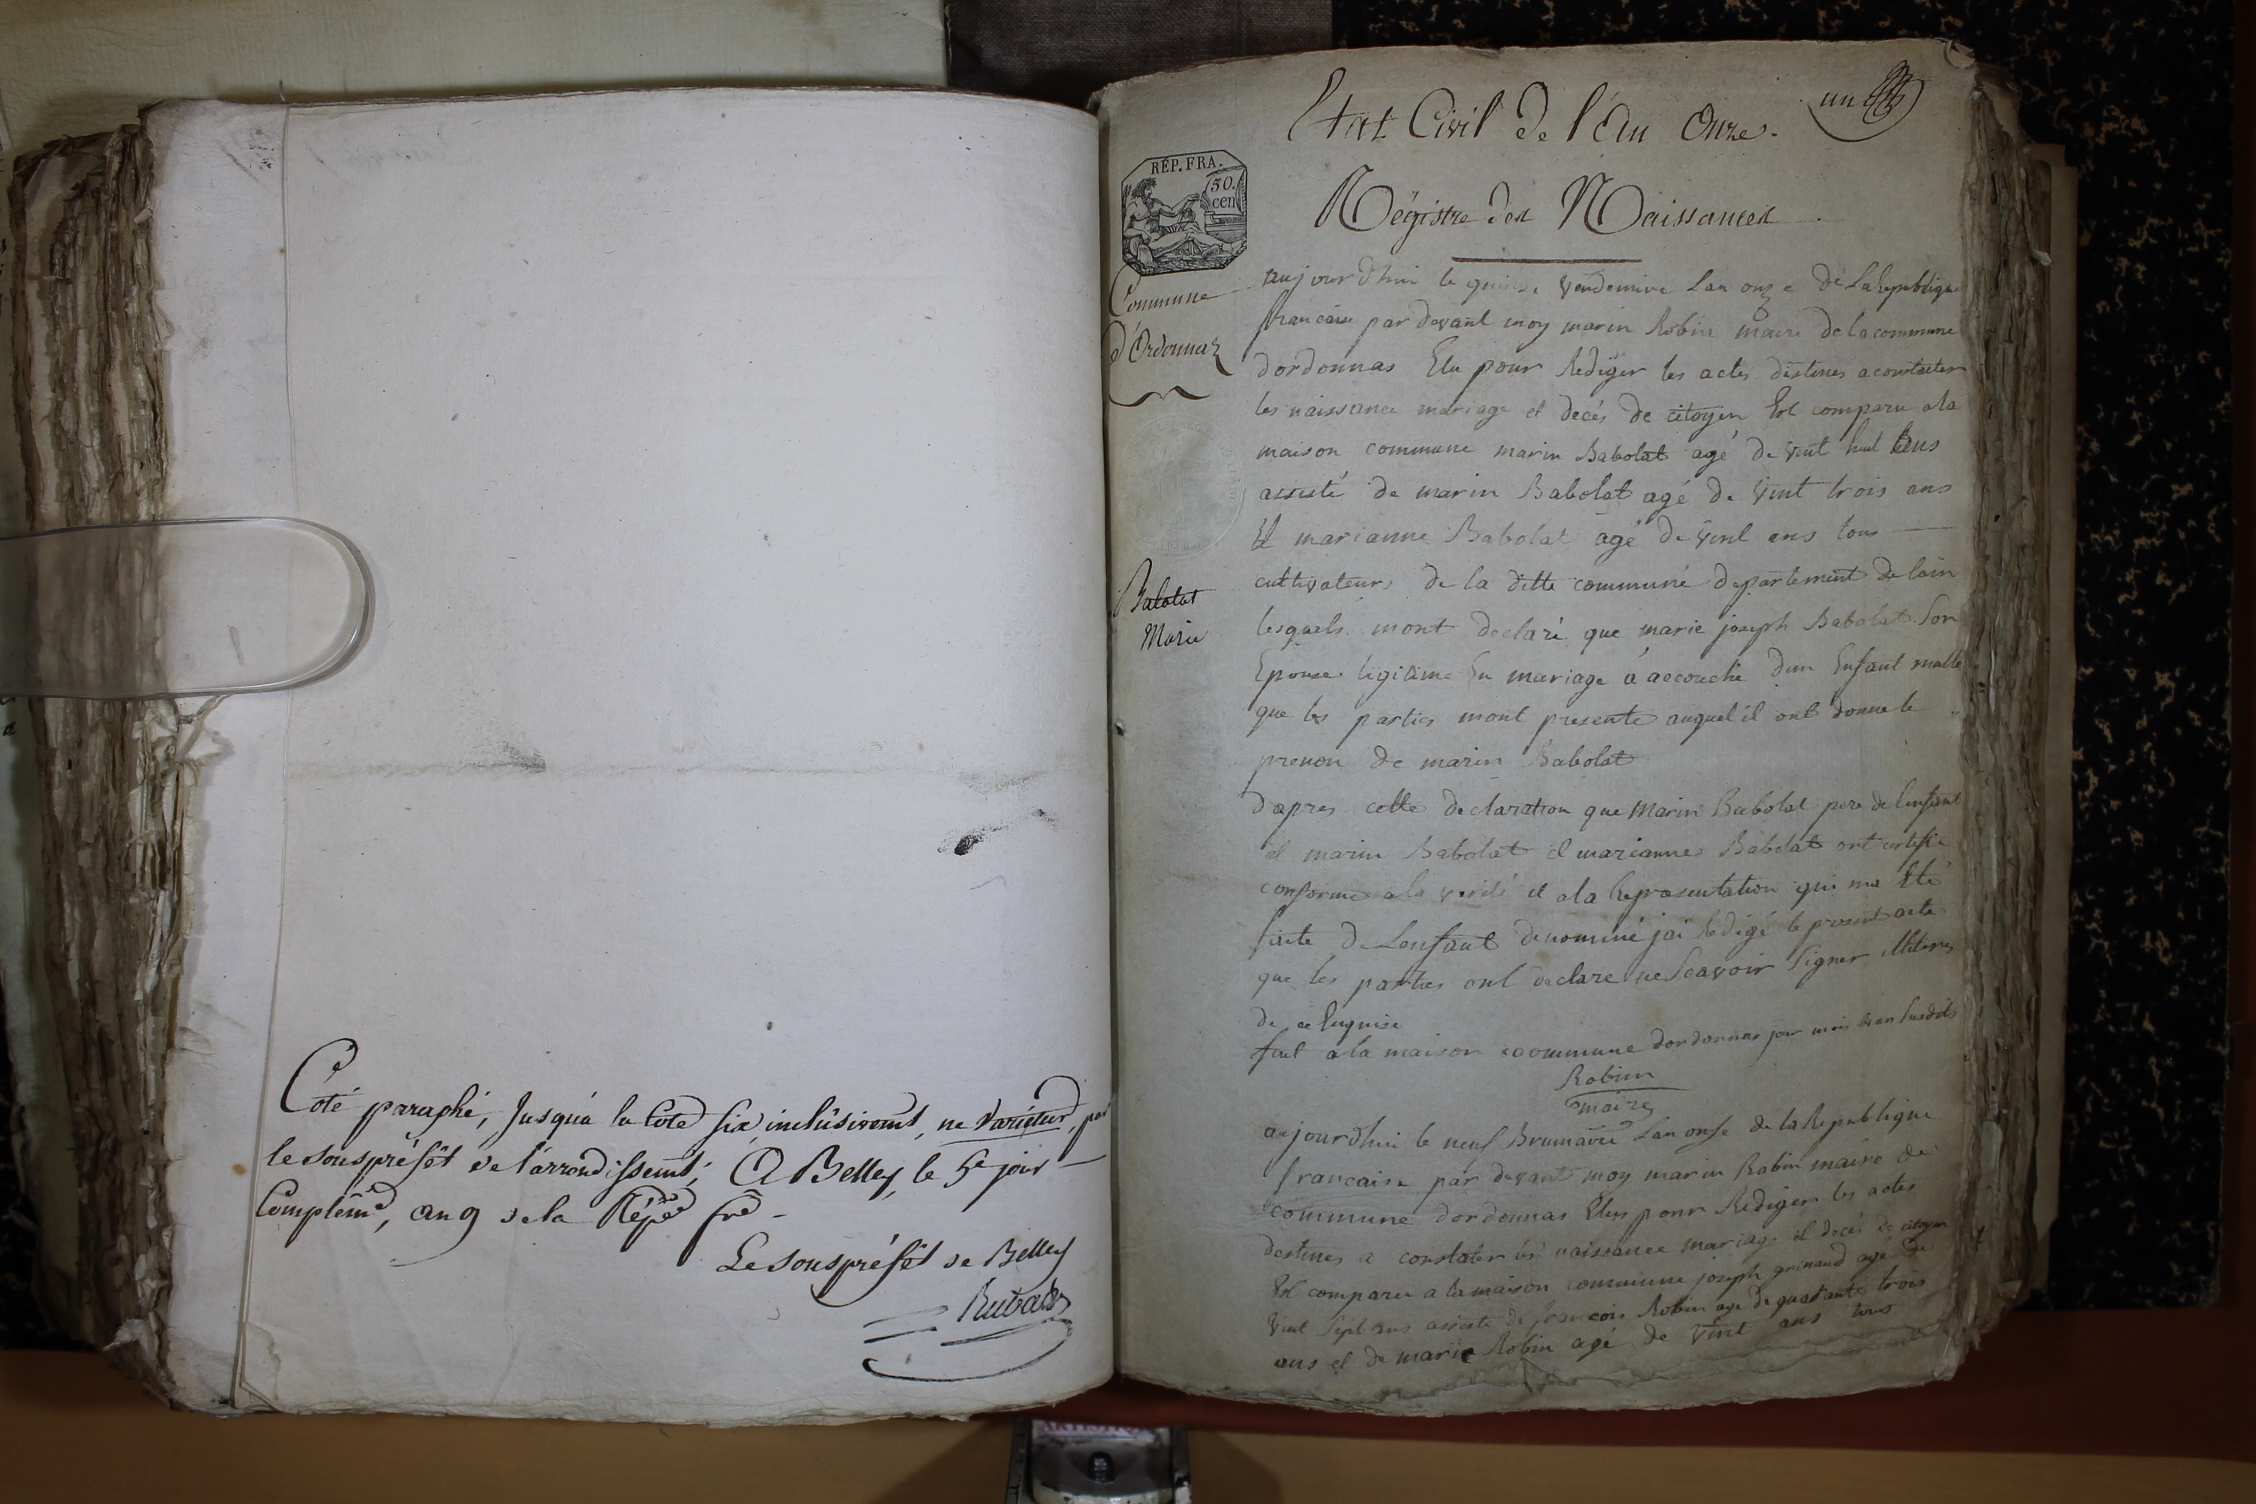 Coté paraphé, Jusqu'a la Cote six inclusivemt, ne varietur, par
le souspréfêt de l'arrondissemt; A Belley, le 5e jour
Complémre, an 9 de la Répque fse
Le souspréfêt de Belley
un
Etat Civil de l'An Onze.
RÉP. FRA.
50.
cen
Régistre des Naissances
Commune
d'Ordonnaz
aujourdhui le quinze Vendemire Lan onze de La republique
francaise par devant moy marin Robin maire de la commune
dordonnas Elu pour Rediger les actes distines a constater
les naissance mariage et decés de citoyen Est comparu a la
maison commune marin Babolat agé de vint huit ans
assisté de marin Babolat agé de vint trois ans
Et marianne Babolat agé de vint ans tous
cultivateurs de la ditte commune departement de lain
Babolat
Marin
lesquels mont declaré que marie joseph Babolat Son
Epouse légitime En mariage a accouché dun Enfant malle
que les parties mont presente auquel il ont donne le
prenon de marin Babolat
dapres cette declaration que Marin Babolat pere de lenfant
et marin Babolat et marianne Babolat ont certifié
conforme a la verité et a la Representation qui ma Eté
faite de Lenfant denommé jai Redigé le present acte
que les parties ont declare ne Scavoir Signer illiteres
de ce Enquise
fait a la maison commune dordonnas jour mois et an Susdits
Robin
maire
aujourdhui le neuf Brumaire Lan onse de la Republique
francaise par devant moy marin Robin maire de
commune dordonnas Elus pour Rediger les actes
destines a constater les naissance mariage et decés de citoyen
Est comparu a la maison commune joseph grinand agé de
vint Sept ans assisté de francois Robin age de quarante trois
ans et de marie Robin agé de vint ans tous